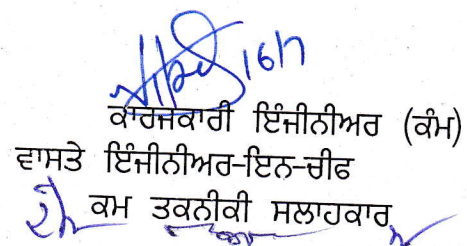 16/7
ਕਾਰਜਕਾਰੀ ਇੰਜੀਨੀਅਰ (ਕੰਮ)
ਵਾਸਤੇ ਇੰਜੀਨੀਅਰ-ਇਨ-ਚੀਫ
ਕਮ ਤਕਨੀਕੀ ਸਲਾਹਕਾਰ